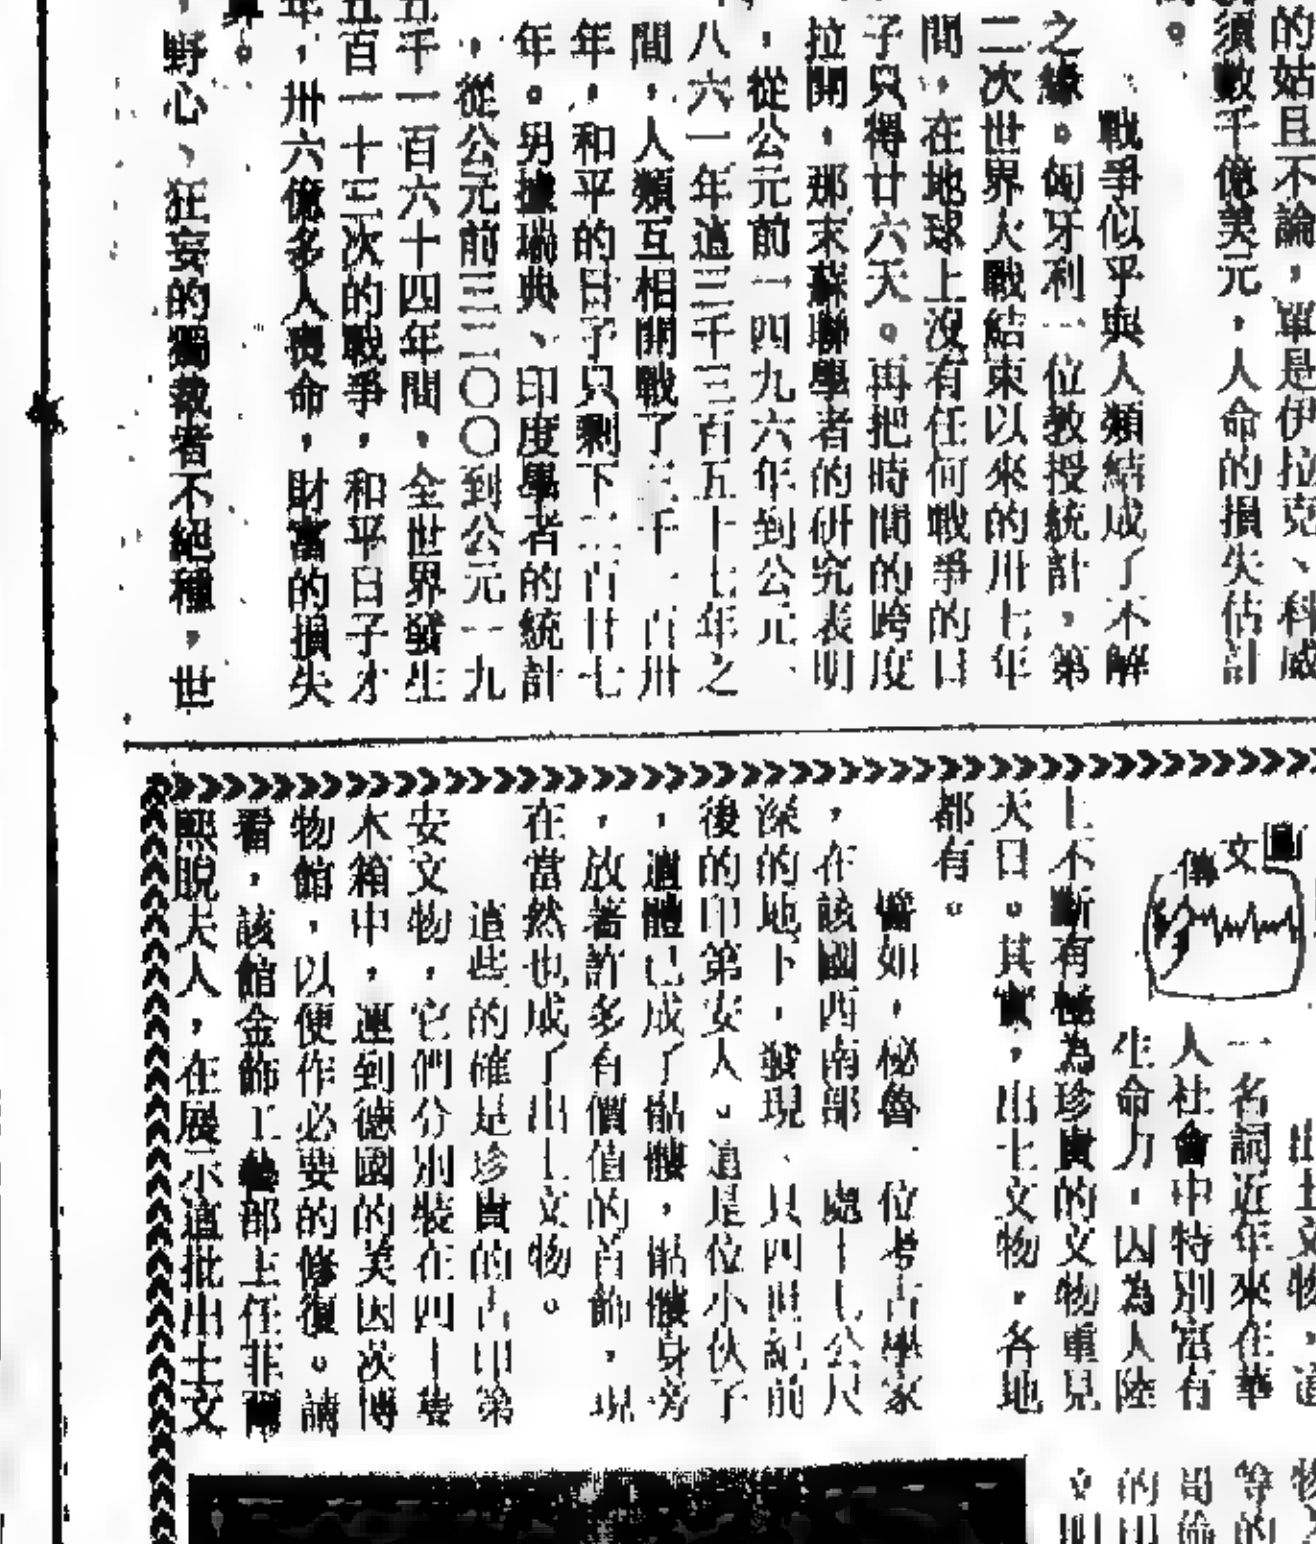 的姑且不論，單是伊拉克、科威
須數千億美元，人命的損失估計
戰爭似乎與人類結成了不解
之緣。匈牙利一位教授統計，第
二次世界大戰結束以來的卅七年
間，在地球上沒有任何戰爭的日
子只得廿六天。再把時間的跨度
拉開，那末蘇聯學者的研究表明
，從公元前一四九六年到公元一
八六一年這三千三百五十七年之
間，人類互相開戰了三千一百卅
年，和平的日子只剩下二百廿七
年。另據瑞典、印度學者的統計
，從公元前三二〇〇到公元一九
五千一百六十四年間，全世界發生
五百一十三次的戰爭，和平日子才
年，卅六億多人喪命，財富的損失
野心、狂妄的獨裁者不絕種，世
圖文傳珍
出土文物，這
一名詞近年來在華
人社會中特別富有
生命力，因為人陸
上不斷有極為珍貴的文物重見
天日。其實，出土文物，各地
都有。
譬如，秘魯一位考古學家
，在該國西南部一處十七公尺
深的地下，發現一具四世紀前
後的印第安人。這是位小伙子
，遺體已成了骷髏，骷髏身旁
，放著許多有價值的首飾，現
在當然也成了出土文物。
這些的確是珍貴的古印第
安文物，它們分別裝在四十隻
木箱中，運到德國的美因茨博
物館，以便作必要的修復。請
看，該館金飾工藝部主任菲爾
熙脫夫人，在展示這批出土文